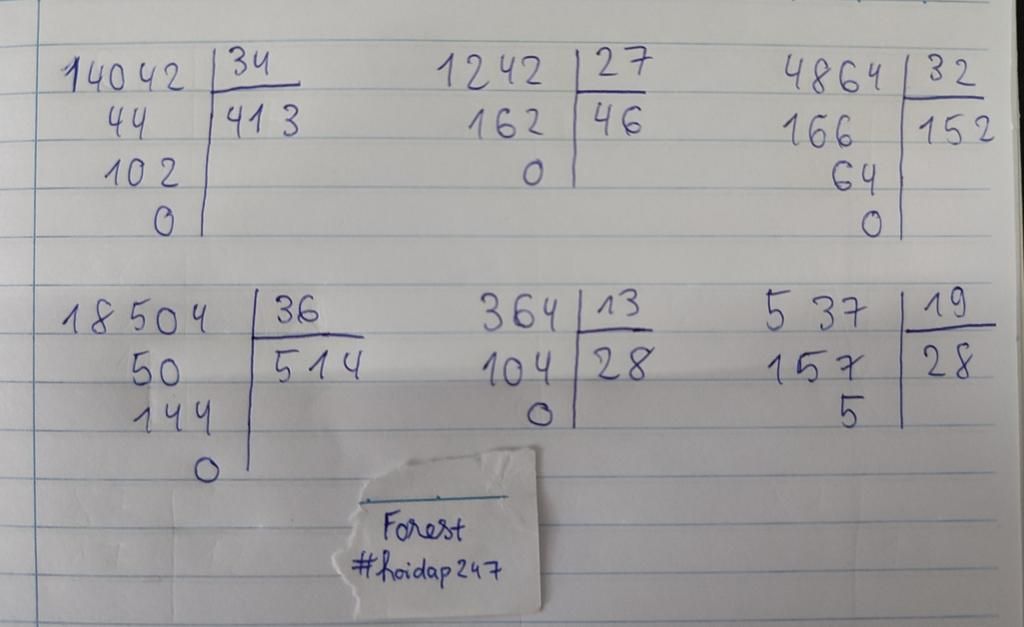 14042 34
44 413
102
0
1242 27
162 46
0
4864 32
166 152
64
0
18504 36
50 514
144
0
364 13
104 28
0
537 19
157 28
5
Forest
#hoidap247